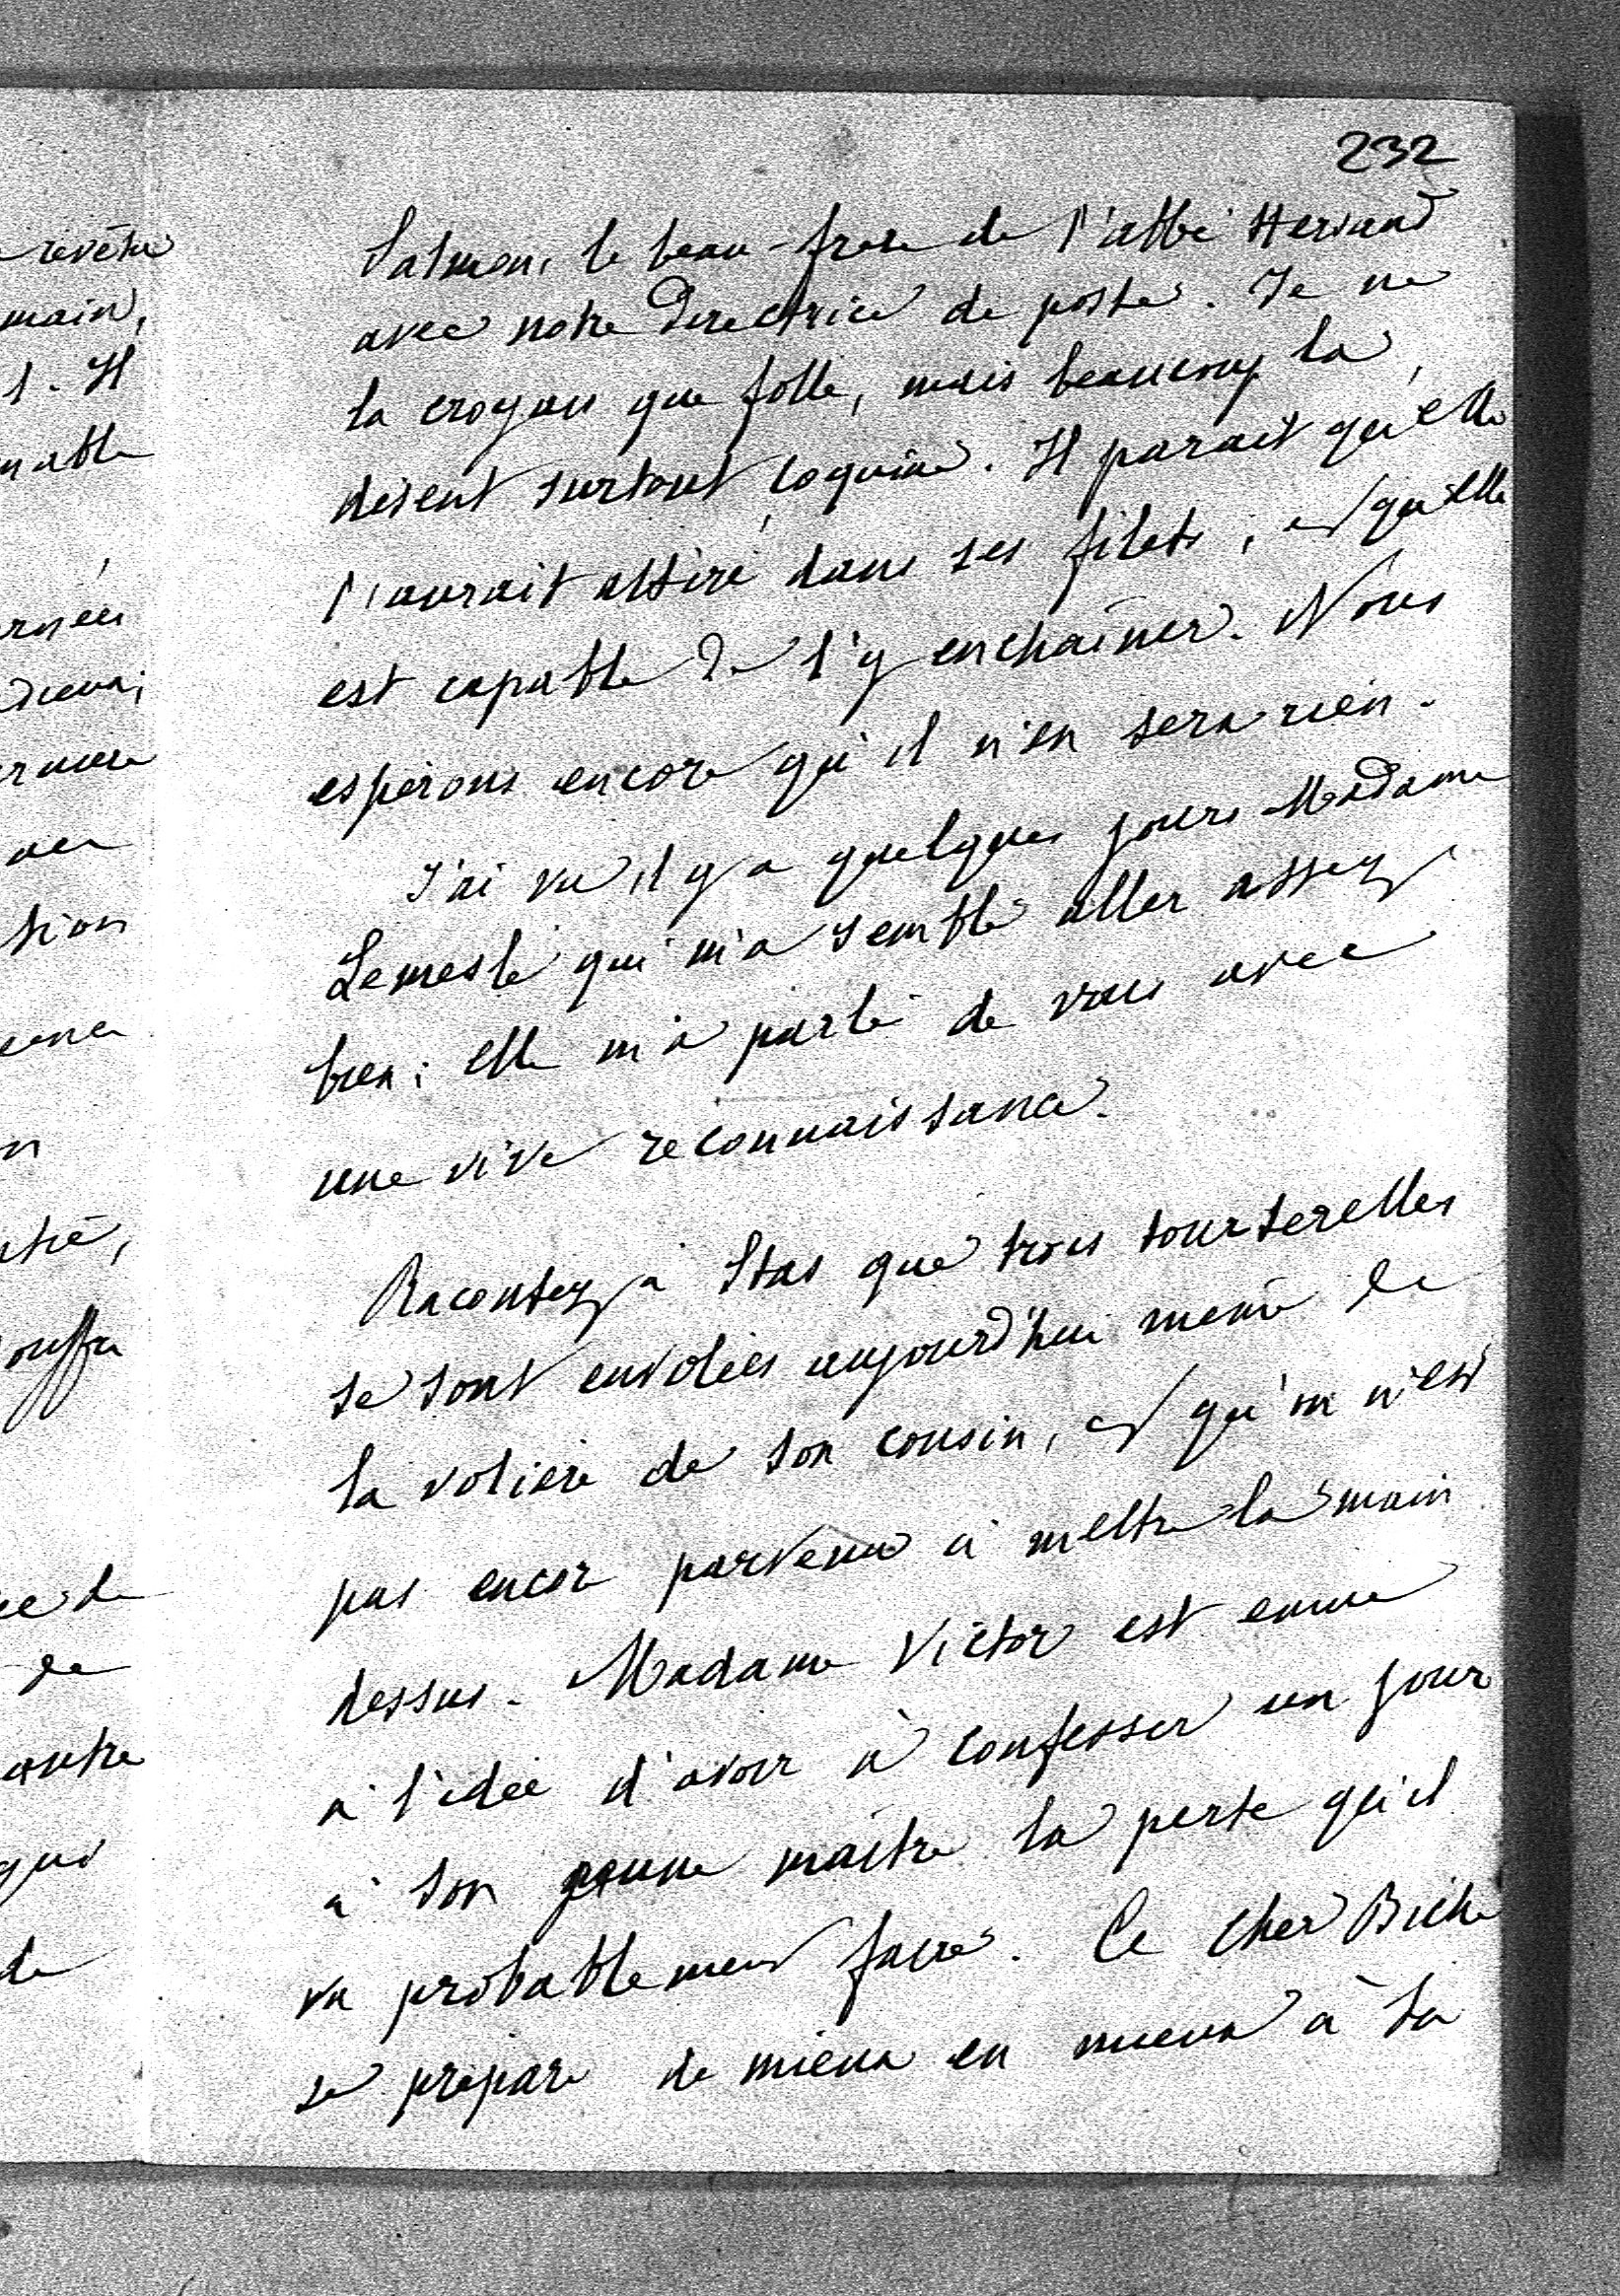 232
Salmon, le beau-frère de l'abbé Hervaud
avec notre Directrice de poste. Je ne
la croyais que folle, mais beaucoup la
disent surtout coquine. Il parait qu'elle
l'aurait attiré dans ses filets, et qu'elle
est capable de l'y enchaîner. Nous
espérons encore qu'il n'en sera rien.
J'ai vu il y a quelques jours Madame
Lemesle qui m'a semblé aller assez
bien; elle m'a parlé de vous avec
une vive reconnaissance.
Racontez à Stas que trois tourterelles
se sont envolées aujourd'hui même de
la volière de son cousin, et qu'on n'est
pas encor parvenu à mettre la main
dessus. Madame Victor est émue
à l'idée d'avoir à confesser un jour
à son jeune maître la perte qu'il
va probablement faire. Ce cher Biche
se prépare de mieux en mieux à sa
revêtu
main,
l. Il
autre
de